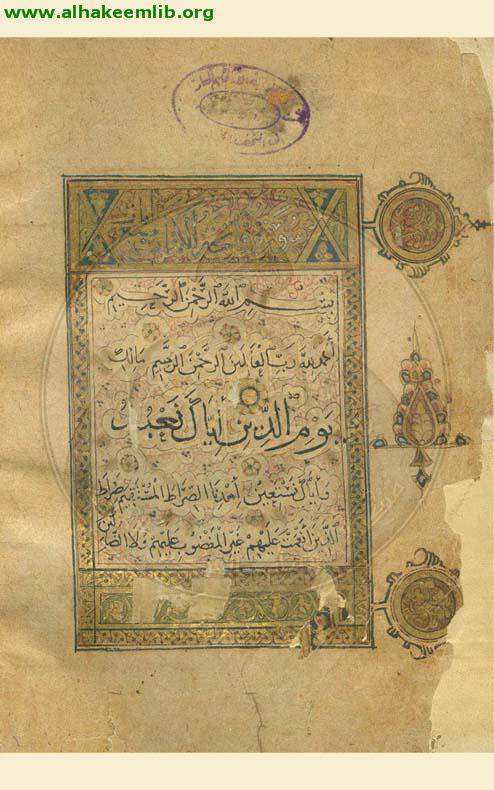 www.alhakeemlib.org
بسم الله الرحمن الرحيم
الحمد لله رب العالمين الرحمن الرحيم مالك
يوم الدين إياك نعبد
وإياك نستعين اهدنا الصراط المستقيم صراط
الذين أنعمت عليهم غير المغضوب عليهم ولا الضالين